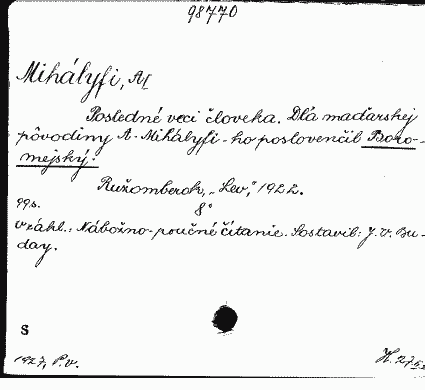 98770
Mihályfi, A[
Posledné veci človeka. Dľa maďarskej
pôvodiny A. Mihályfi-ho poslovenčil Boro-
mejský.
Ružomberok, "Lev", 1922.
99s. 8°
V záhl.: Nábožno-poučné čítanie. Sostavil: J. V. Bu-
day.
S
1927, P.v.